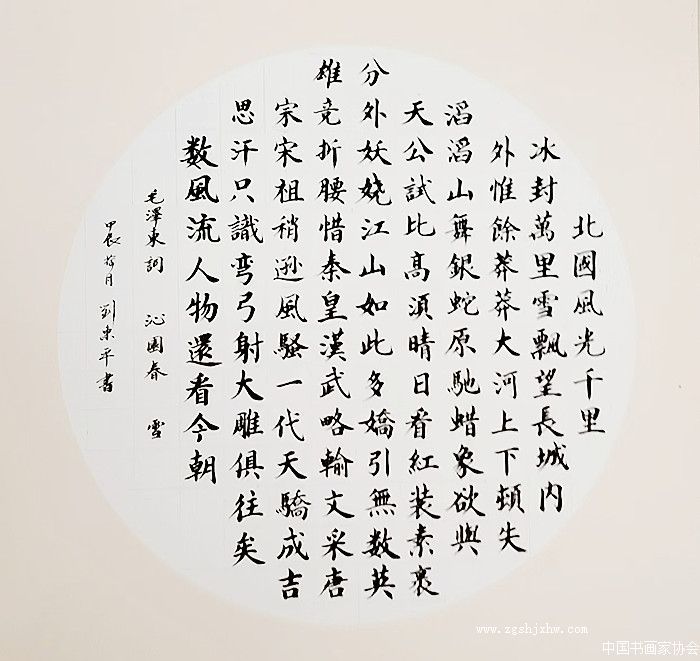 北國風光千里
冰封萬里雪飄望長城内
外惟餘莽莽大河上下頓失
滔滔山舞銀蛇原馳蜡象欲與
天公試比高須晴日看紅装素裹
分外妖娆江山如此多嬌引無数英
雄竞折腰惜秦皇漢武略輸文采唐
宗宋祖稍遜風騷一代天驕成吉
思汗只識弯弓射大雕俱往矣
数風流人物還看今朝
毛澤東詞 沁園春 雪
甲辰月 劉東平書
www.zgshjxhw.com
中国书画家协会